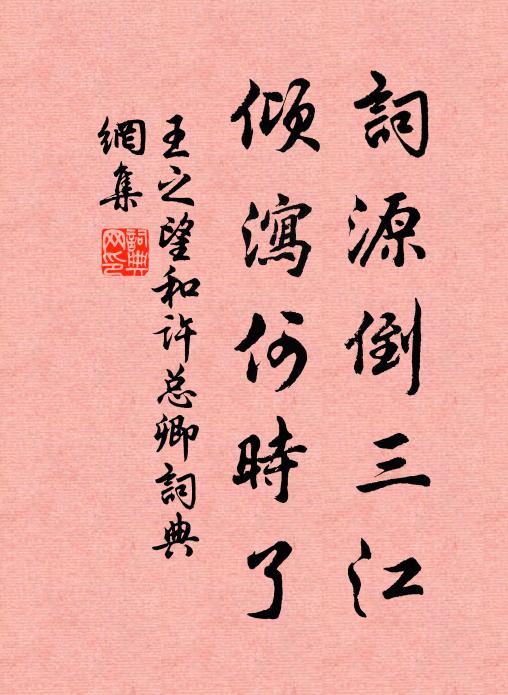 詞源倒三江
傾瀉何時了
王之望和许总卿詞典
網集
詞典網印